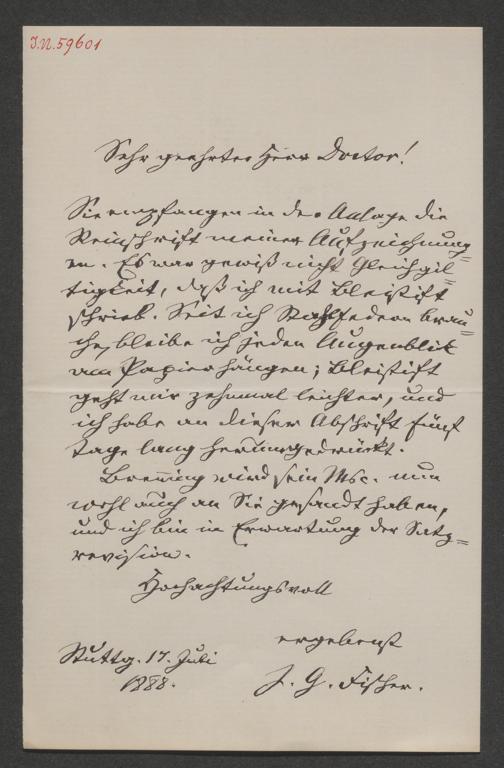 I.N. 59601
Sehr geehrter Herr Doctor!
Sie empfangen in der Anlage die
Reinschrift meiner Aufzeichnung=
en. Es war gewiß nicht Gleichgil=
tigkeit, daß ich mit Bleistift
schrieb. Seit ich Stahlfedern brau=
che, bleibe ich jeden Augenblik
am Papier hängen; Bleistift
geht mir zehnmal leichter, und
ich habe an dieser Abschrift fünf
Tage lang herumgedrückt.
Brenning wird sein Msc. nun
wohl auch an Sie gesandt haben,
und ich bin in Erwartung der Satz=
revision.
Hochachtungsvoll
ergebenst
Stuttg. 17. Juli
1888.
J. G. Fischer.